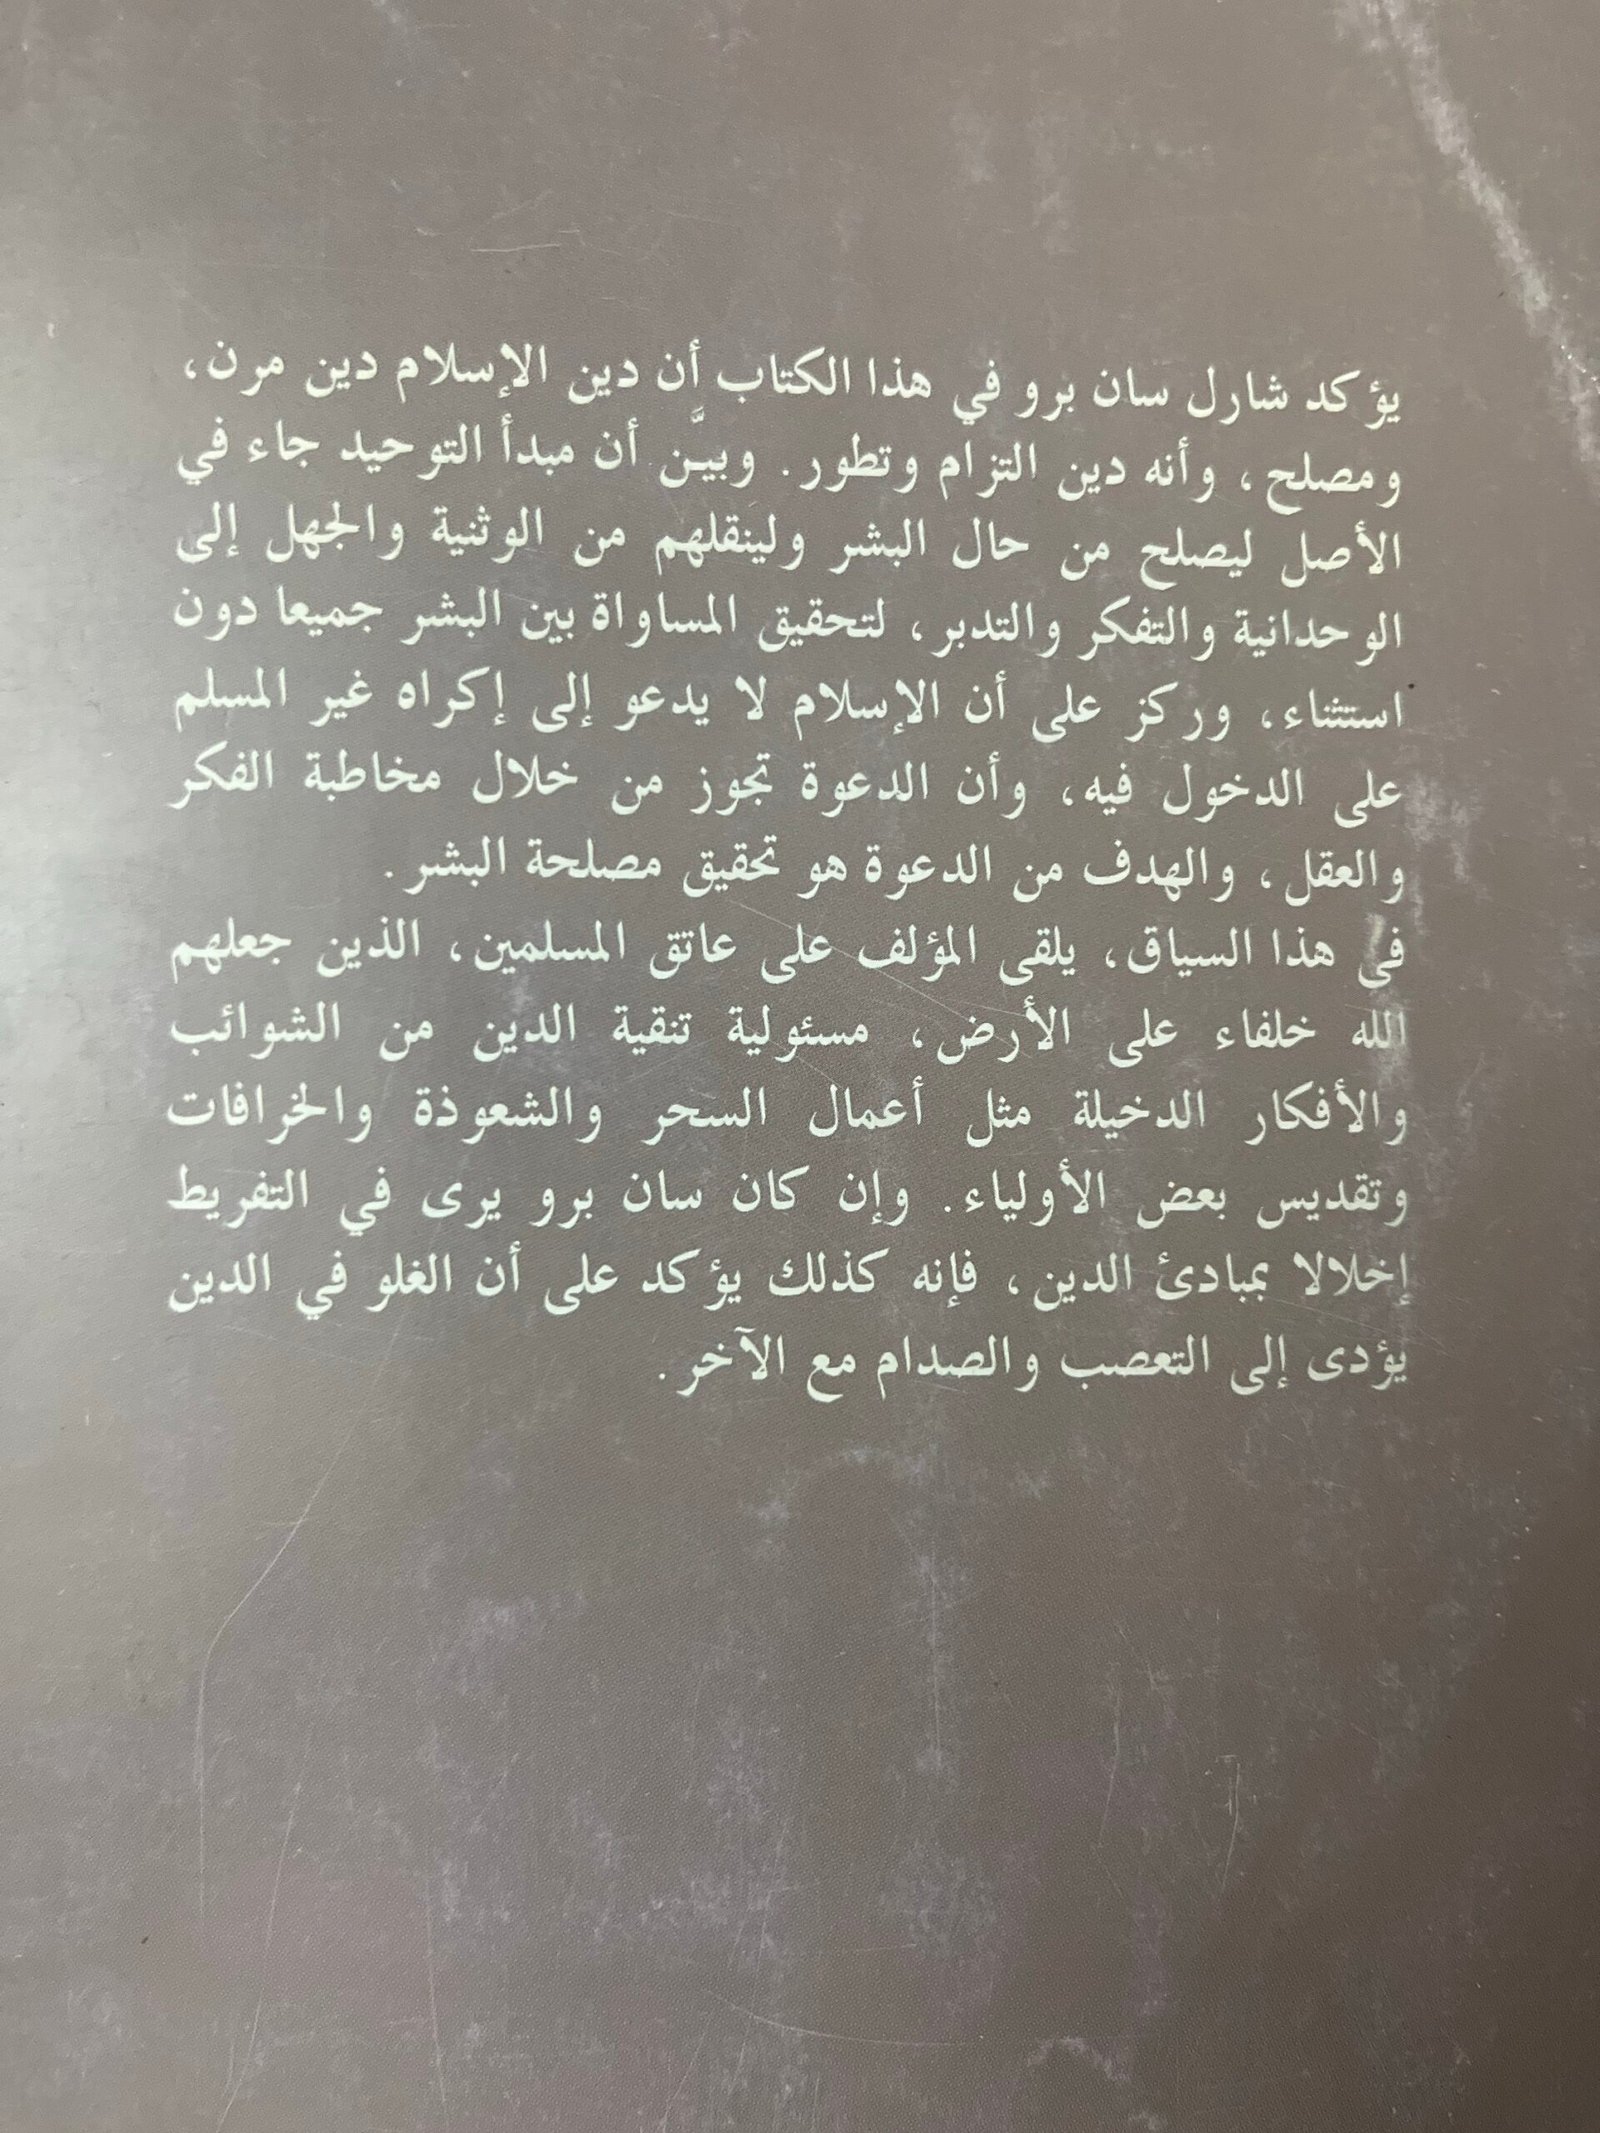 يؤكد شارل سان برو في هذا الكتاب أن دين الإسلام دين مرن،
ومصلح، وأنه دين التزام وتطور. وبيَّن أن مبدأ التوحيد جاء في
الأصل ليصلح من حال البشر ولينقلهم من الوثنية والجهل إلى
الوحدانية والتفكر والتدبر، لتحقيق المساواة بين البشر جميعا دون
استثناء، وركز على أن الإسلام لا يدعو إلى إكراه غير المسلم
على الدخول فيه، وأن الدعوة تجوز من خلال مخاطبة الفكر
والعقل، والهدف من الدعوة هو تحقيق مصلحة البشر.
فى هذا السياق، يلقى المؤلف على عاتق المسلمين، الذين جعلهم
الله خلفاء على الأرض، مسئولية تنقية الدين من الشوائب
والأفكار الدخيلة مثل أعمال السحر والشعوذة والخرافات
وتقديس بعض الأولياء. وإن كان سان برو يرى في التفريط
إخلالا بمبادئ الدين، فإنه كذلك يؤكد على أن الغلو في الدين
يؤدى إلى التعصب والصدام مع الآخر.